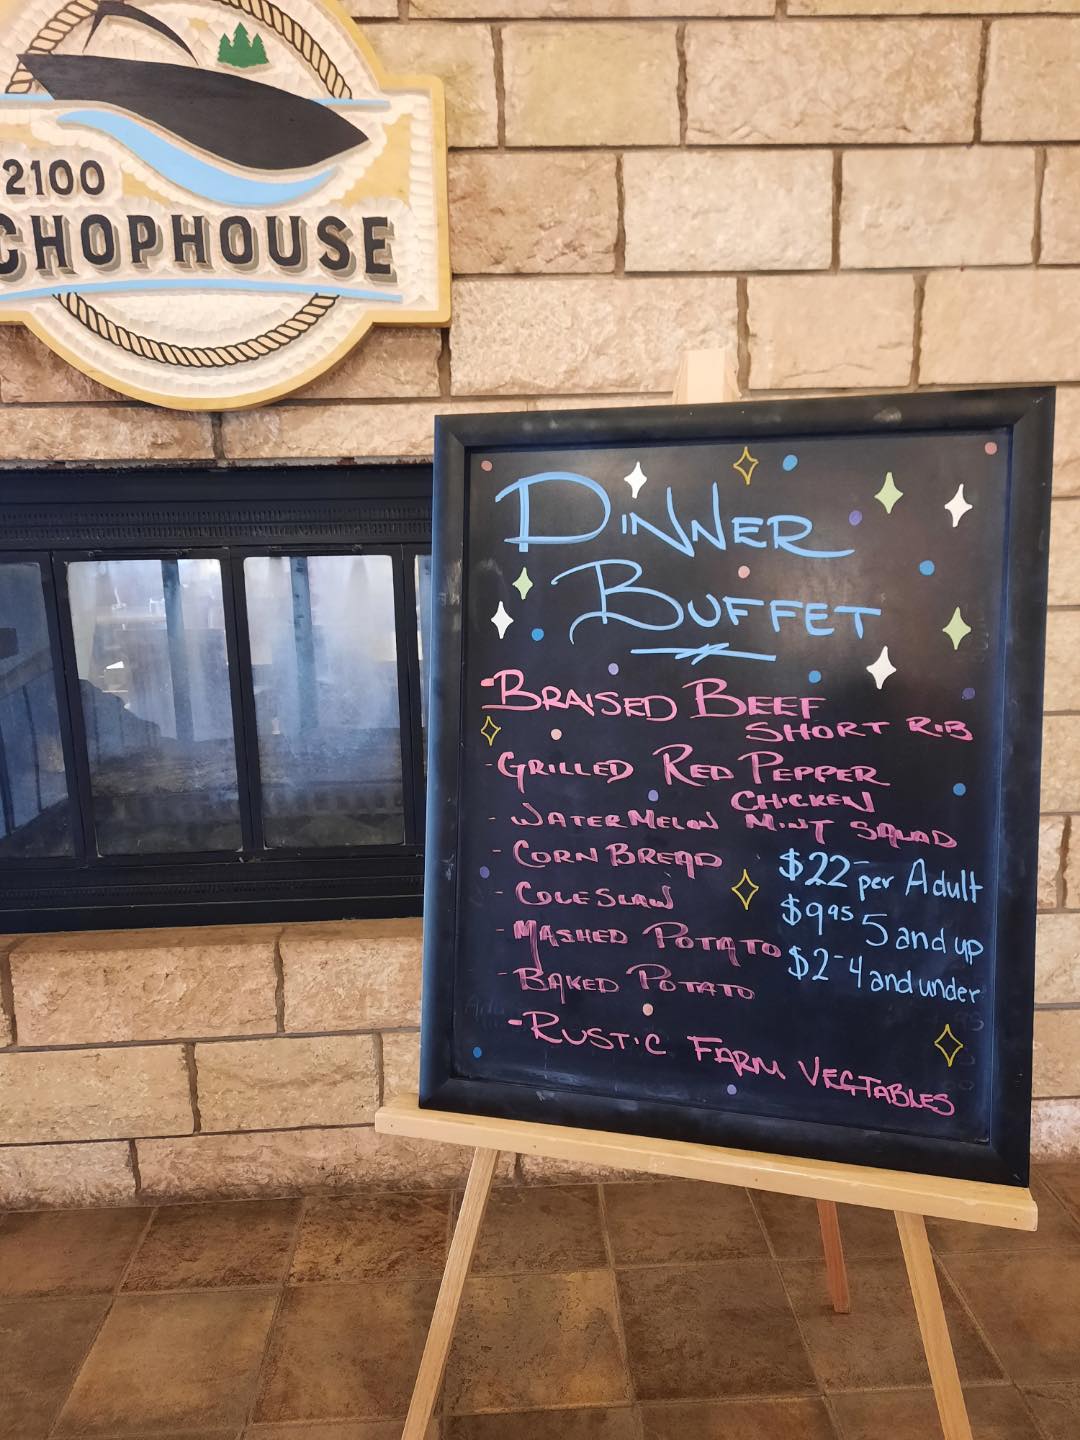 2100
CHOPHOUSE
DINNER
BUFFET
-BRAISED BEEF
SHORT RIB
-GRILLED RED PEPPER
CHICKEN
- WATERMELON MINT SALAD
- CORN BREAD
- COLESLAW
- MASHED POTATO
- BAKED POTATO
-RUSTIC FARM VEGTABLES
$22- per Adult
$9.95 5 and up
$2- 4 and under